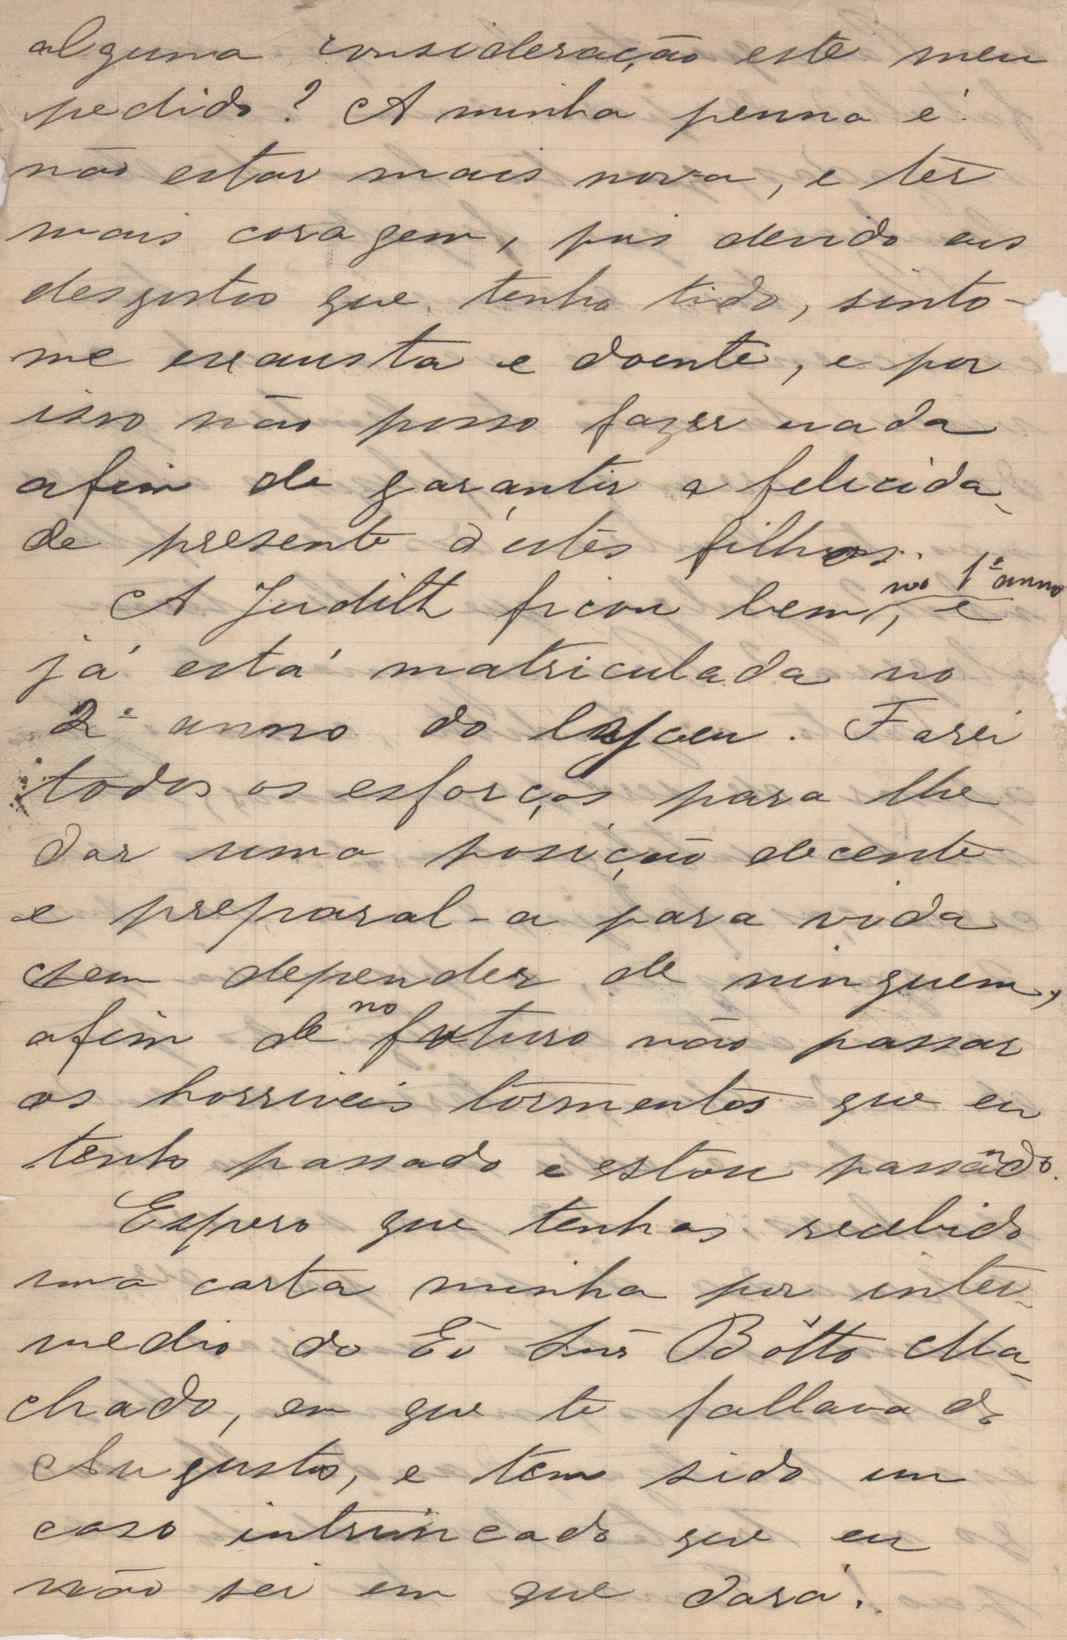 alguma consideração este meu
pedido? A minha penna é
não estar mais nova, e ter
mais coragem, pois devido aos
desgostos que tenho tido, sinto-
me exausta e doente, e por
isso não posso fazer nada
afim de garantir a felicida-
de presente d'estes filhos.
A Judith ficou bem, no 1º anno e
já está matriculada no
2º anno do lyceu. Farei
todos os esforços para lhe
dar uma posição decente
e preparal-a para vida
sem depender de ninguem,
afim de no futuro não passar
os horriveis tormentos que eu
tenho passado e estou passando.
Espero que tenhas recebido
uma carta minha por inter-
medio do Snr Bôtto Ma-
chado, em que te fallava do
Augusto, e tem sido um
caso intrincado que eu
não sei em que dará!